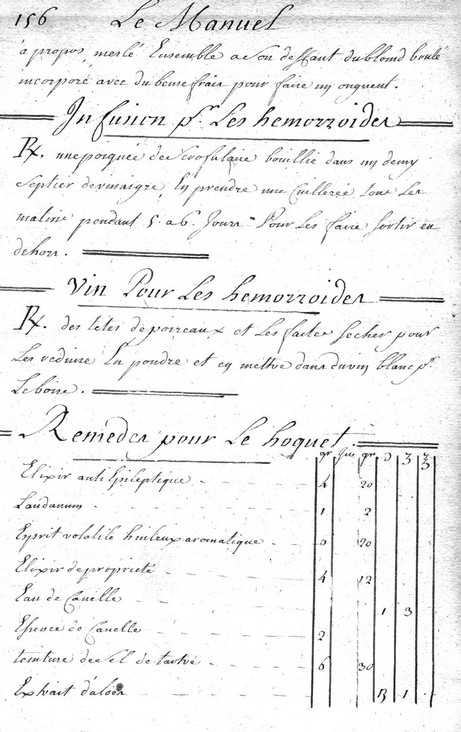 156 Le Manuel
à propos, meslé Ensemble a son deffaut du blond boulé
incorporé avec du beure frais pour faire un onguent.
Infusion pr. Les hemorroides
Rx. une poignée de scrofulaire bouillie dans un demy
septier de vinaigre, En prendre une Cuillerée tout Les
matins pendant 5. a 6. Jours Pour Les faire sortir en
dehors.
Vin Pour Les hemorroides
Rx. des tetes de poireaux et Les faites secher pour
Les reduire En poudre et en mettre dans du vin blanc pr.
Le boire.
Remedes pour Le hoquet.
gr Jus gr Э ʒ ℥
Elixir anti Epileptique 4 20
Laudanum 1 2
Esprit volatile huileux aromatique 0 20
Elixir de propriété 4 12
Eau de Canelle 1 3
Essence de Canelle 2
teinture de sel de tartre 6 30
Extrait d'aloës B 1